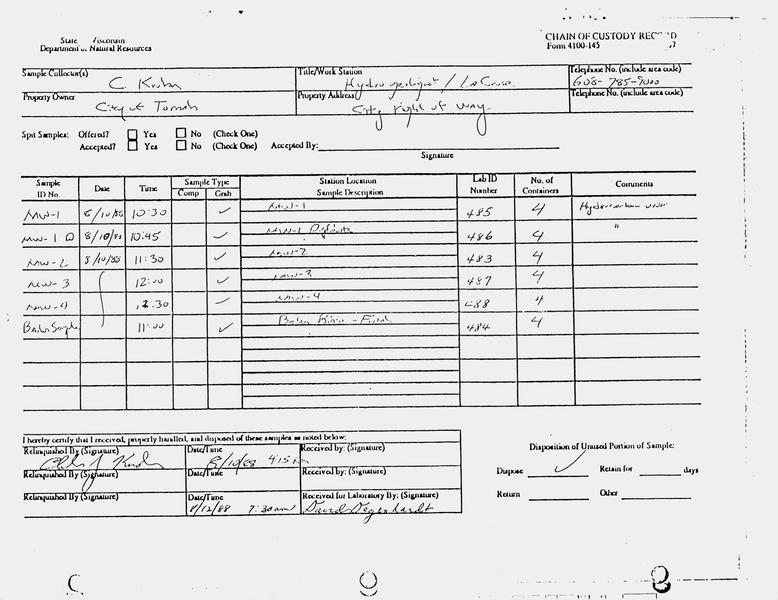 State Wisconsin
Department of Natural Resources
CHAIN OF CUSTODY RECORD
Form 4100-145
Sample Collector(s) Title/Work Station Telephone No. (include area code)
C. Krohn Hydrogeologist / La Crosse 608-785-9000
Property Owner Property Address Telephone No. (include area code)
City of Tomah City right of way.
Split Samples: Offered? Yes No (Check One)
Accepted? Yes No (Check One) Accepted By:
Signature
Sample ID No. Date Time Sample Type Comp Grab Station Location Sample Description Lab ID Number No. of Containers Comments
MW-1 8/10/88 10:30 ✓ MW-1 485 4 Hydrocarbon odor
MW-1 D 8/10/88 10:45 ✓ MW-1 Duplicate 486 4 "
MW-2 8/10/88 11:30 ✓ MW-2 483 4
MW-3 12:00 ✓ MW-3 487 4
MW-4 12:30 ✓ MW-4 488 4
Bailer Sample 11:00 ✓ Bailer 484 4
I hereby certify that I received, properly handled, and disposed of these samples as noted below:
Relinquished By (Signature) Date/Time Received by: (Signature)
Krohn 8/10/88 4:15
Relinquished By (Signature) Date/Time Received by: (Signature)
Relinquished By (Signature) Date/Time Received for Laboratory By: (Signature)
8/12/88 7:30am David Degenhardt
Disposition of Unused Portion of Sample:
Dispose ✓ Retain for days
Return Other